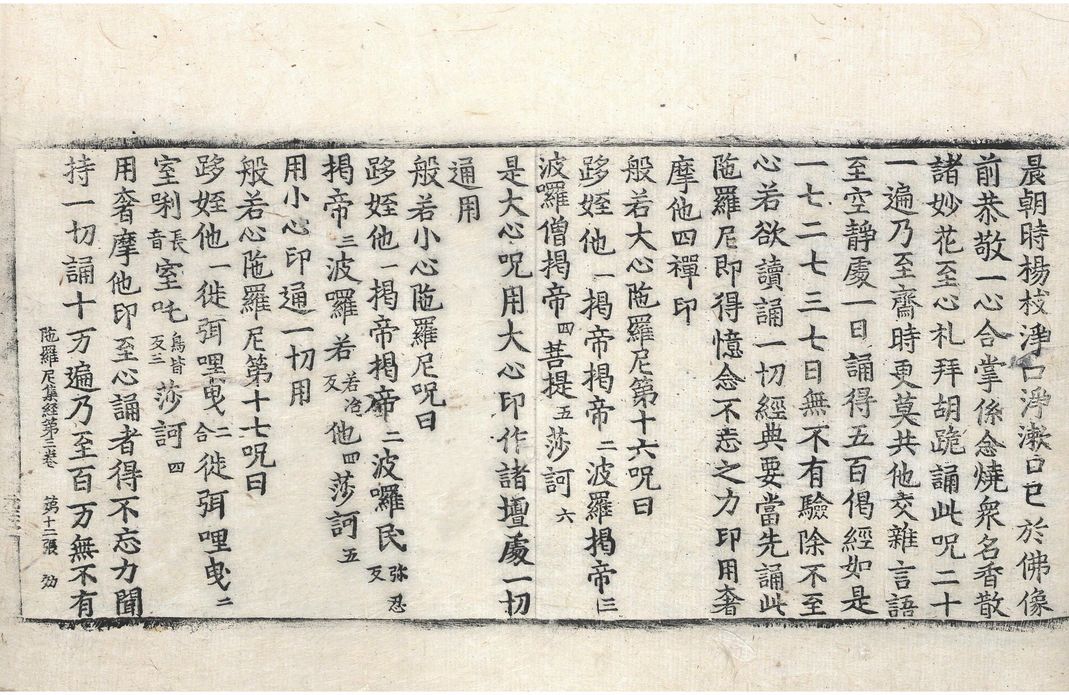 晨朝時楊枝淨口淨漱口已於佛像
前恭敬一心合掌係念燒衆名香散
諸妙花至心礼拜胡跪誦此呪二十
一遍乃至齋時更莫共他交雜言語
至空靜處一日誦得五百偈經如是
一七二七三七日無不有驗除不至
心若欲讀誦一切經典要當先誦此
陁羅尼即得憶念不忘之力印用奢
摩他四禪印
般若大心陁羅尼第十六呪曰
跢姪他一掲帝掲帝二波羅掲帝三
波囉僧掲帝四菩提五莎訶六
是大心呪用大心印作諸壇處一切
通用
般若小心陁羅尼呪曰
跢姪他一掲帝掲帝二波囉民弥忍反
掲帝三波囉若若冶反他四莎訶五
用小心印通一切用
般若心陁羅尼第十七呪曰
跢姪他一徙弭哩曵二合徙弭哩曵二
室唎長音室吒烏皆反三莎訶四
用奢摩他印至心誦者得不忘力聞
持一切誦十万遍乃至百万無不有
陁羅尼集經第三卷 第十二張 効